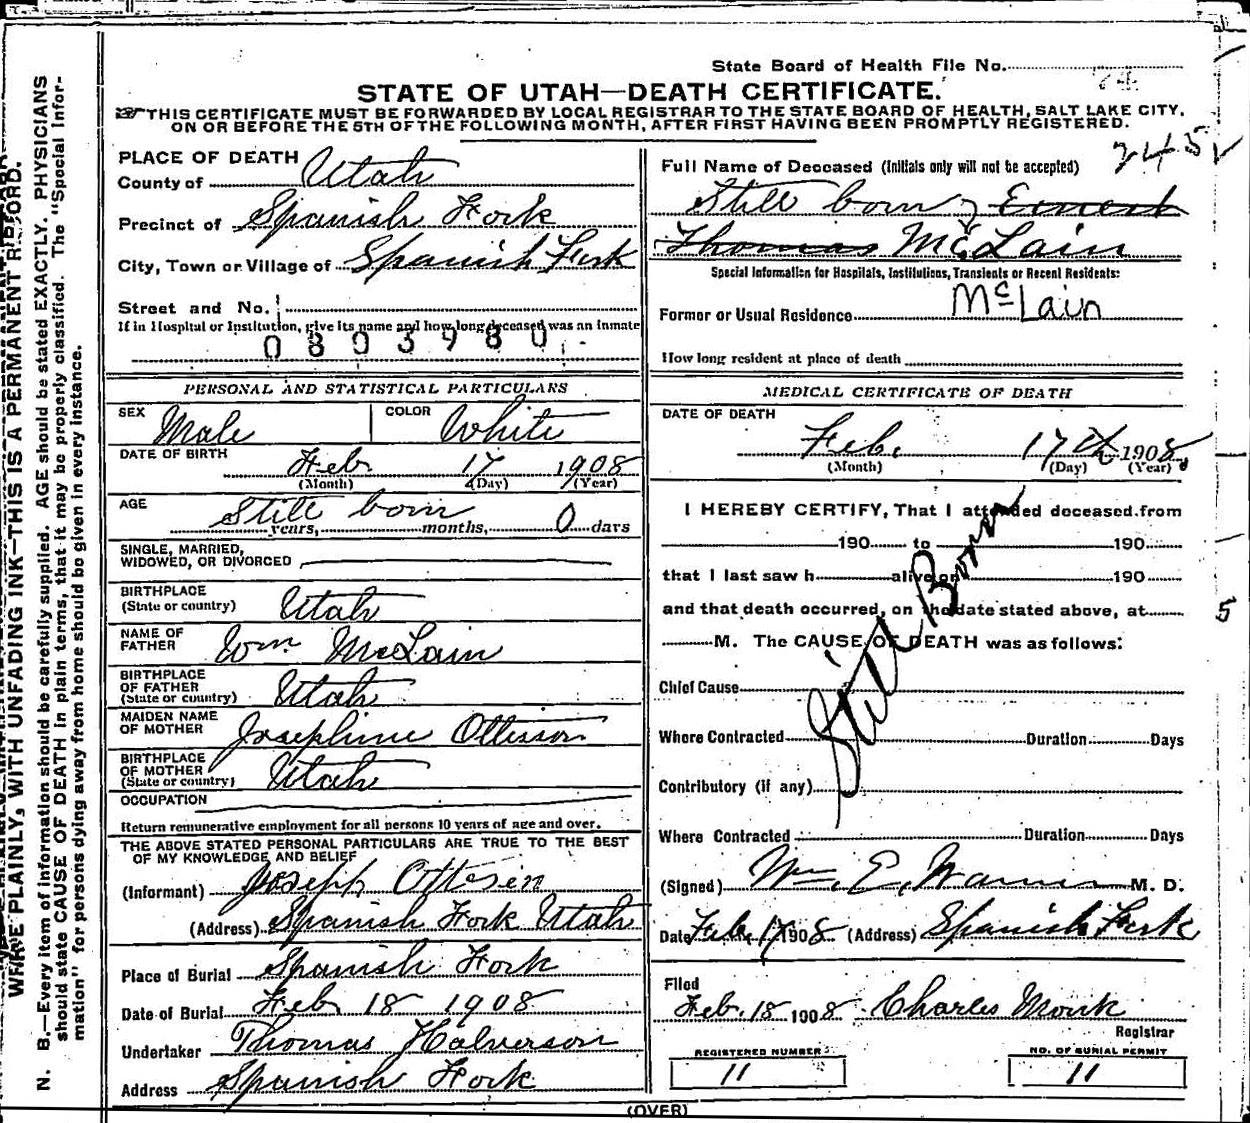 State Board of Health File No. 74
STATE OF UTAH—DEATH CERTIFICATE.
THIS CERTIFICATE MUST BE FORWARDED BY LOCAL REGISTRAR TO THE STATE BOARD OF HEALTH, SALT LAKE CITY,
ON OR BEFORE THE 5TH OF THE FOLLOWING MONTH, AFTER FIRST HAVING BEEN PROMPTLY REGISTERED.
245
PLACE OF DEATH
County of Utah
Precinct of Spanish Fork
City, Town or Village of Spanish Fork
Street and No.
If in Hospital or Institution, give its name and how long deceased was an inmate
0803980
PERSONAL AND STATISTICAL PARTICULARS
SEX Male COLOR White
DATE OF BIRTH Feb 17 1908
(Month) (Day) (Year)
AGE Still born
years, months, 0 days
SINGLE, MARRIED,
WIDOWED, OR DIVORCED
BIRTHPLACE
(State or country) Utah
NAME OF
FATHER Wm McLain
BIRTHPLACE
OF FATHER
(State or country) Utah
MAIDEN NAME
OF MOTHER Josephine Ottesson
BIRTHPLACE
OF MOTHER
(State or country) Utah
OCCUPATION
Return remunerative employment for all persons 10 years of age and over.
THE ABOVE STATED PERSONAL PARTICULARS ARE TRUE TO THE BEST
OF MY KNOWLEDGE AND BELIEF
(Informant) Joseph Ottesen
(Address) Spanish Fork Utah
Place of Burial Spanish Fork
Date of Burial Feb 18 1908
Undertaker Thomas Halverson
Address Spanish Fork
Full Name of Deceased (Initials only will not be accepted)
Still born Ernest
Thomas McLain
Special Information for Hospitals, Institutions, Transients or Recent Residents:
McLain
Former or Usual Residence
How long resident at place of death
MEDICAL CERTIFICATE OF DEATH
DATE OF DEATH
Feb. 17th 1908
(Month) (Day) (Year)
I HEREBY CERTIFY, That I attended deceased from
190 to 190
that I last saw h alive on 190
and that death occurred, on the date stated above, at
M. The CAUSE OF DEATH was as follows:
Still Born
Chief Cause
Where Contracted Duration Days
Contributory (if any)
Where Contracted Duration Days
(Signed) Wm. E. Warner M. D.
Date Feb. 17 1908 (Address) Spanish Fork
Filed
Feb. 18 1908 Charles Monk
Registrar
REGISTERED NUMBER
11
NO. OF BURIAL PERMIT
11
(OVER)
5
WRITE PLAINLY, WITH UNFADING INK—THIS IS A PERMANENT RECORD.
N. B.—Every item of information should be carefully supplied. AGE should be stated EXACTLY. PHYSICIANS
should state CAUSE OF DEATH in plain terms, that it may be properly classified. The "Special Infor-
mation" for persons dying away from home should be given in every instance.